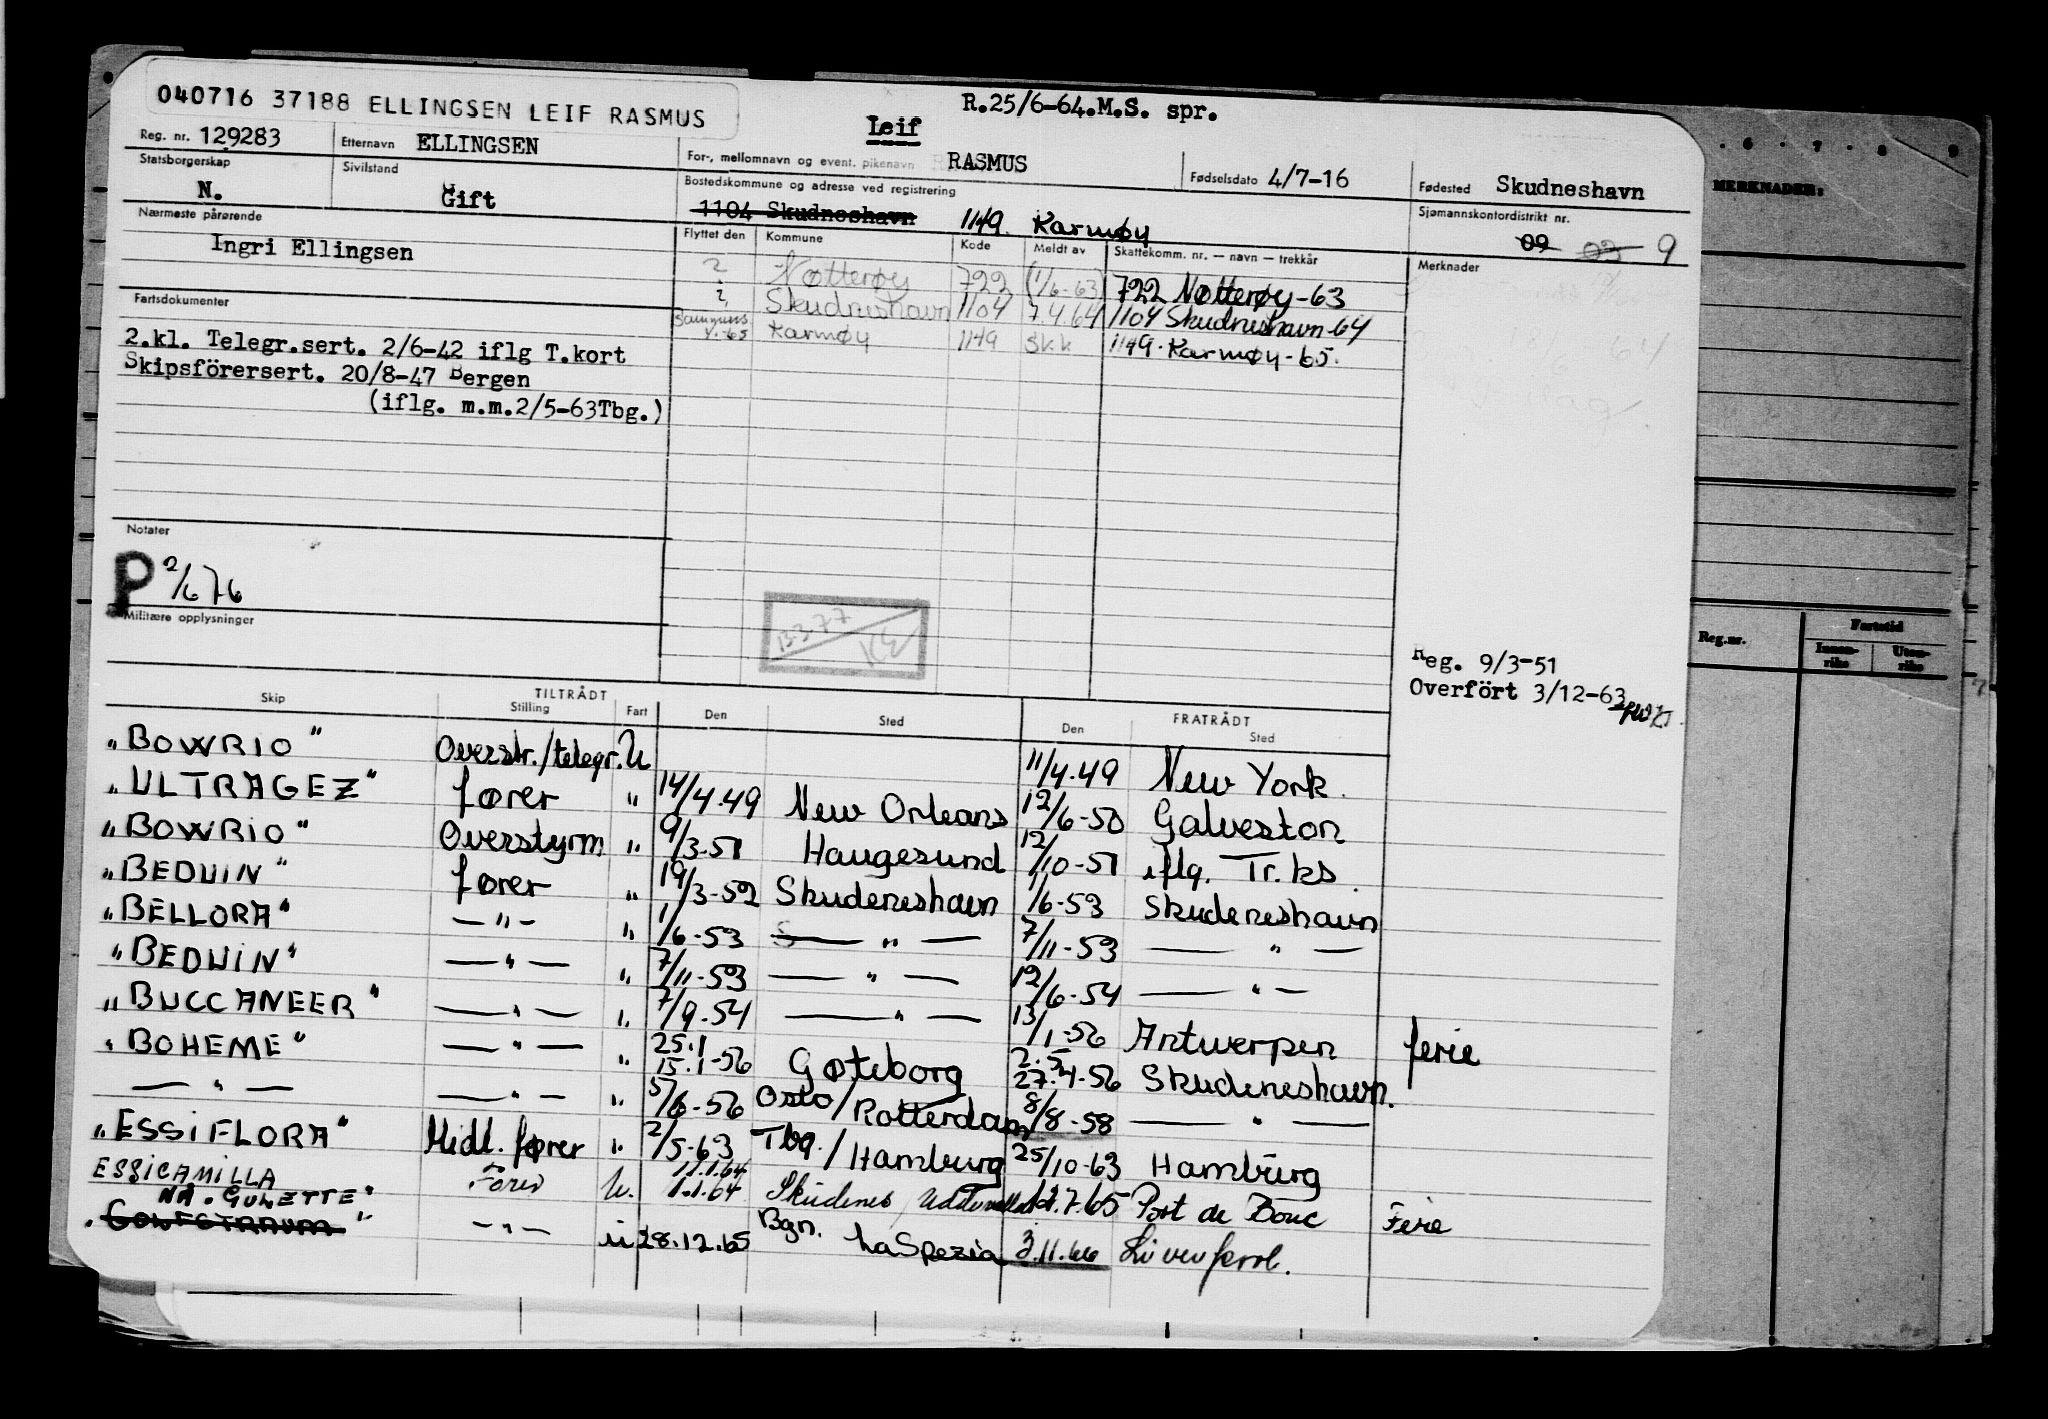 040716 37188 ELLINGSEN LEIF RASMUS
R.25/6-64.M.S. spr.
Reg. nr. 129283 Etternavn ELLINGSEN For-, mellomnavn og event. pikenavn Leif RASMUS Fødselsdato 4/7-16 Fødested Skudneshavn
Statsborgerskap N. Sivilstand Gift Bostedskommune og adresse ved registrering 1104 Skudneshavn 1149. Karmøy Sjømannskontordistrikt nr. 09 03 9
Nærmeste pårørende
Ingri Ellingsen
Flyttet den Kommune Kode Meldt av Skattekomm. nr. — navn — trekkår Merknader
? Nøtterøy 722 (1/6-63) 722 Nøtterøy-63
? Skudneshavn 1104 7.4.64 1104 Skudneshavn-64
1.-65 Karmøy 1149 Sk.k 1149. Karmøy-65.
Fartsdokumenter
2.kl. Telegr.sert. 2/6-42 iflg T.kort
Skipsförersert. 20/8-47 Bergen
(iflg. m.m.2/5-63Tbg.)
Notater
P 2/6 76
Militære opplysninger
B377
KE
Reg. 9/3-51
Overfört 3/12-63
TILTRÅDT FRATRÅDT
Skip Stilling Fart Den Sted Den Sted
"BOWRIO" Overstr./telegr. U 11/4.49 New York.
"ULTRAGEZ" fører " 14/4.49 New Orleans 12/6-50 Galveston
"BOWRIO" Overstyrm " 9/3-51 Haugesund 12/10-51 iflg. Tr.ks.
"BEDUIN" fører " 19/3-52 Skudeneshavn 1/6-53 Skudeneshavn
"BELLORA" — " — " 1/6-53 — " — 7/11-53 — " —
"BEDUIN" — " — " 7/11-53 — " — 12/6-54 — " —
"BUCCANEER" — " — " 7/9-54 — " — 13/1-56 Antwerpen ferie
"BOHEME" — " — " 25.1 15.1-56 Gøteborg 2.5 27.4-56 Skudeneshavn.
— " — — " — " 5/6-56 Oslo/Rotterdam 8/8-58 — " —
"ESSIFLORA" Midl. fører " 2/5-63 Tbg./Hamburg 25/10-63 Hamburg
ESSICAMILLA Fører U. 11.1.64 1.1.64 Skudenes/Uddevalla 7.65 Port de Bouc Ferie
NÅ. GULETTE" — " — U 28.12.65 Bgn. La Spezia 3.11.66
MERKNADER:
Reg.nr.
Fartstid
Innen-rike Uten-rike